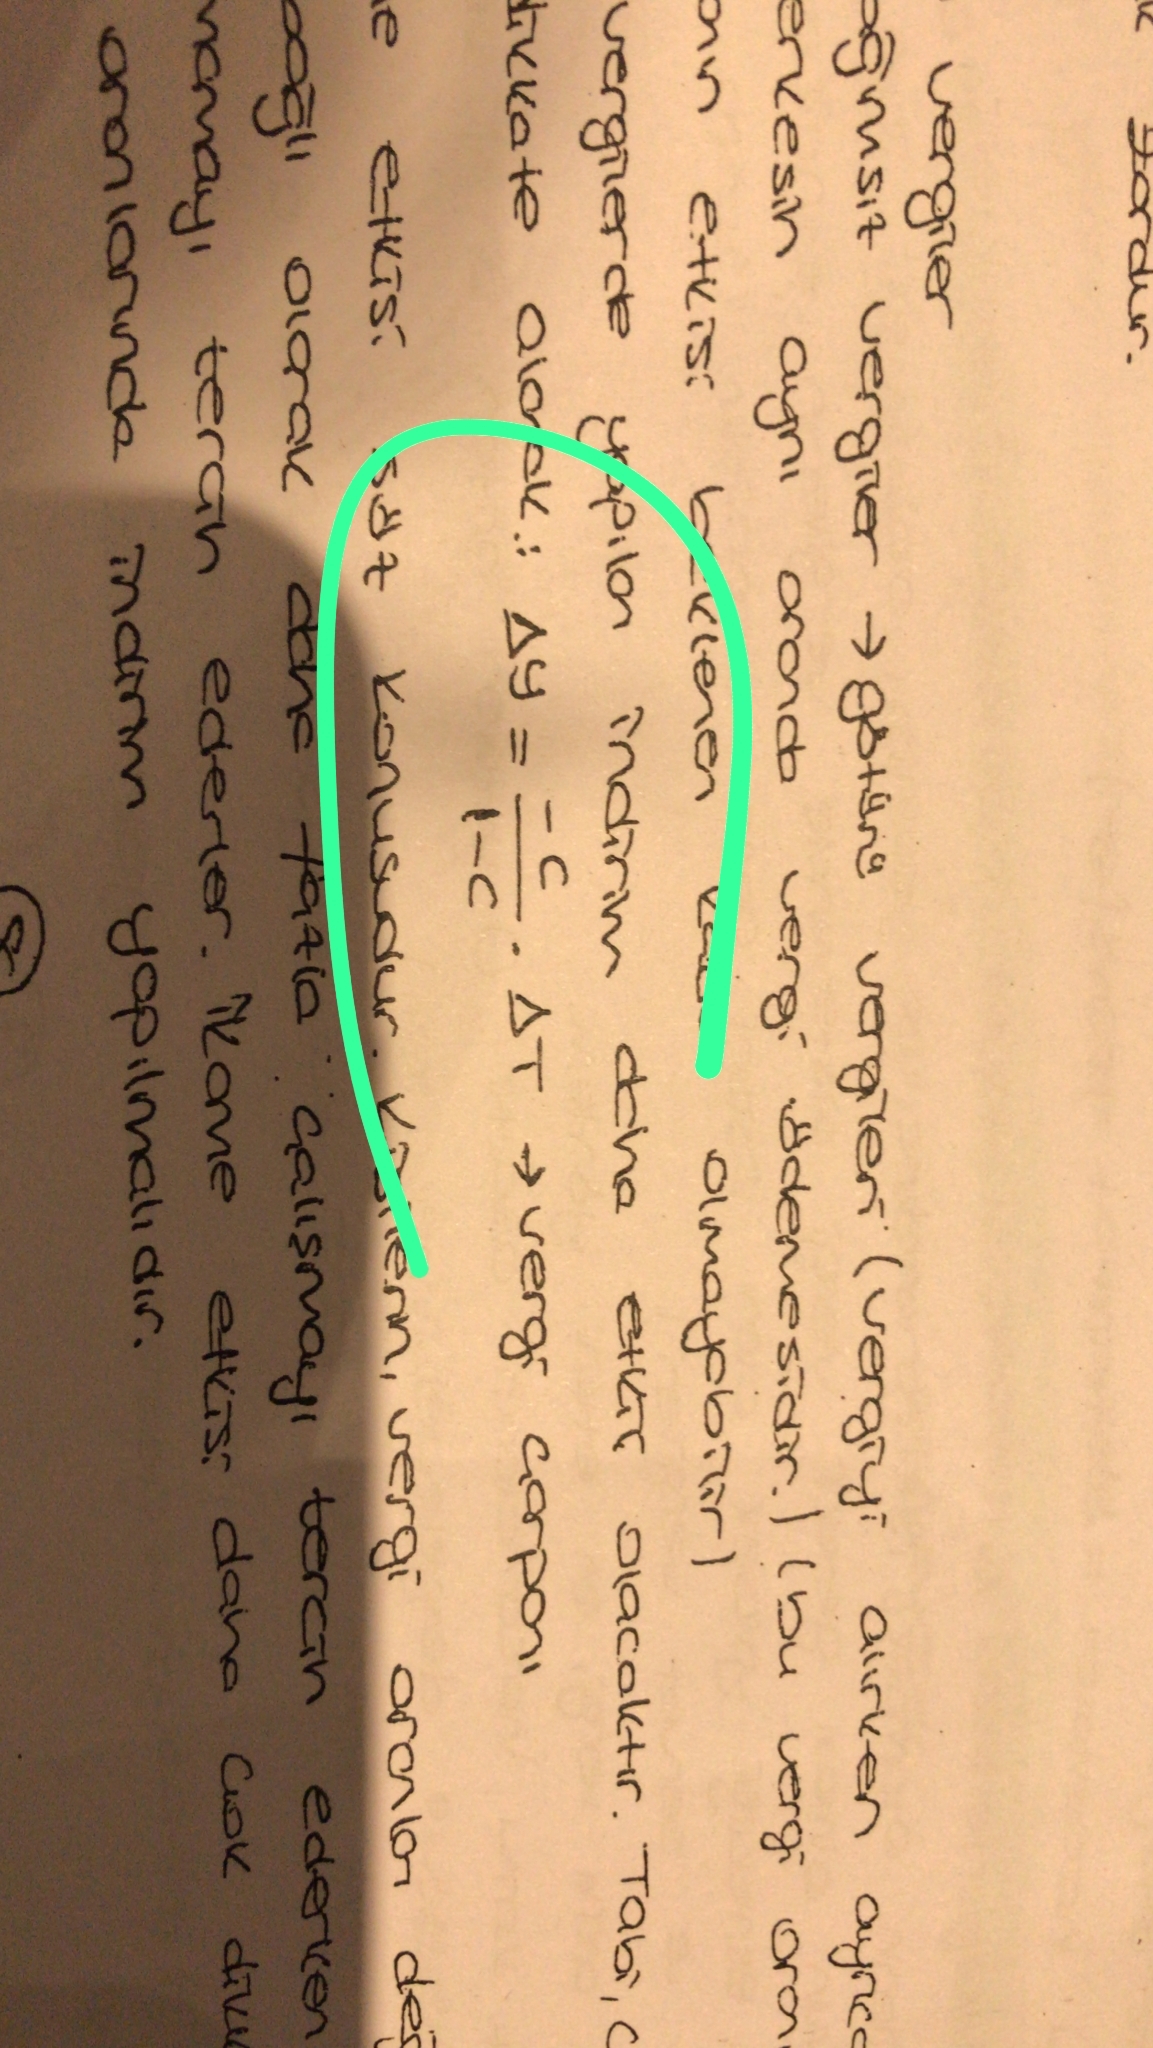 tordur.
vergiler
vergiler → götürü vergiler (vergiyi alırken ayrıca
erkesin aynı oranda vergi ödemesidir.) (bu vergi oran
etkisi beklenen olmayabilir)
vergilerde yapılan indirim daha etkili olacaktır. Tabi, c
dikkate alarak: Δy = -c / 1-c . ΔT → vergi çarpanı
etkisi söz konusudur. vergi oranları
bağlı olarak daha fazla çalışmayı tercih ederken
tercih ederler. İkame etkisi daha çok
oranlarında indirim yapılmalıdır.
8